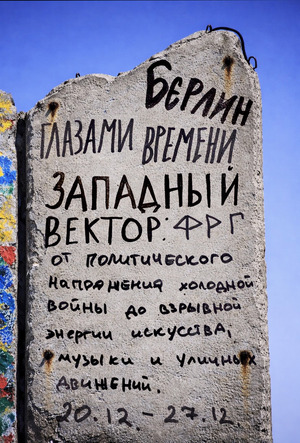 БЕРЛИН
ГЛАЗАМИ ВРЕМЕНИ
ЗАПАДНЫЙ
ВЕКТОР: ФРГ
от политического
напряжения холодной
войны до взрывной
энергии искусства,
музыки и уличных
движений.
20.12. – 27.12.